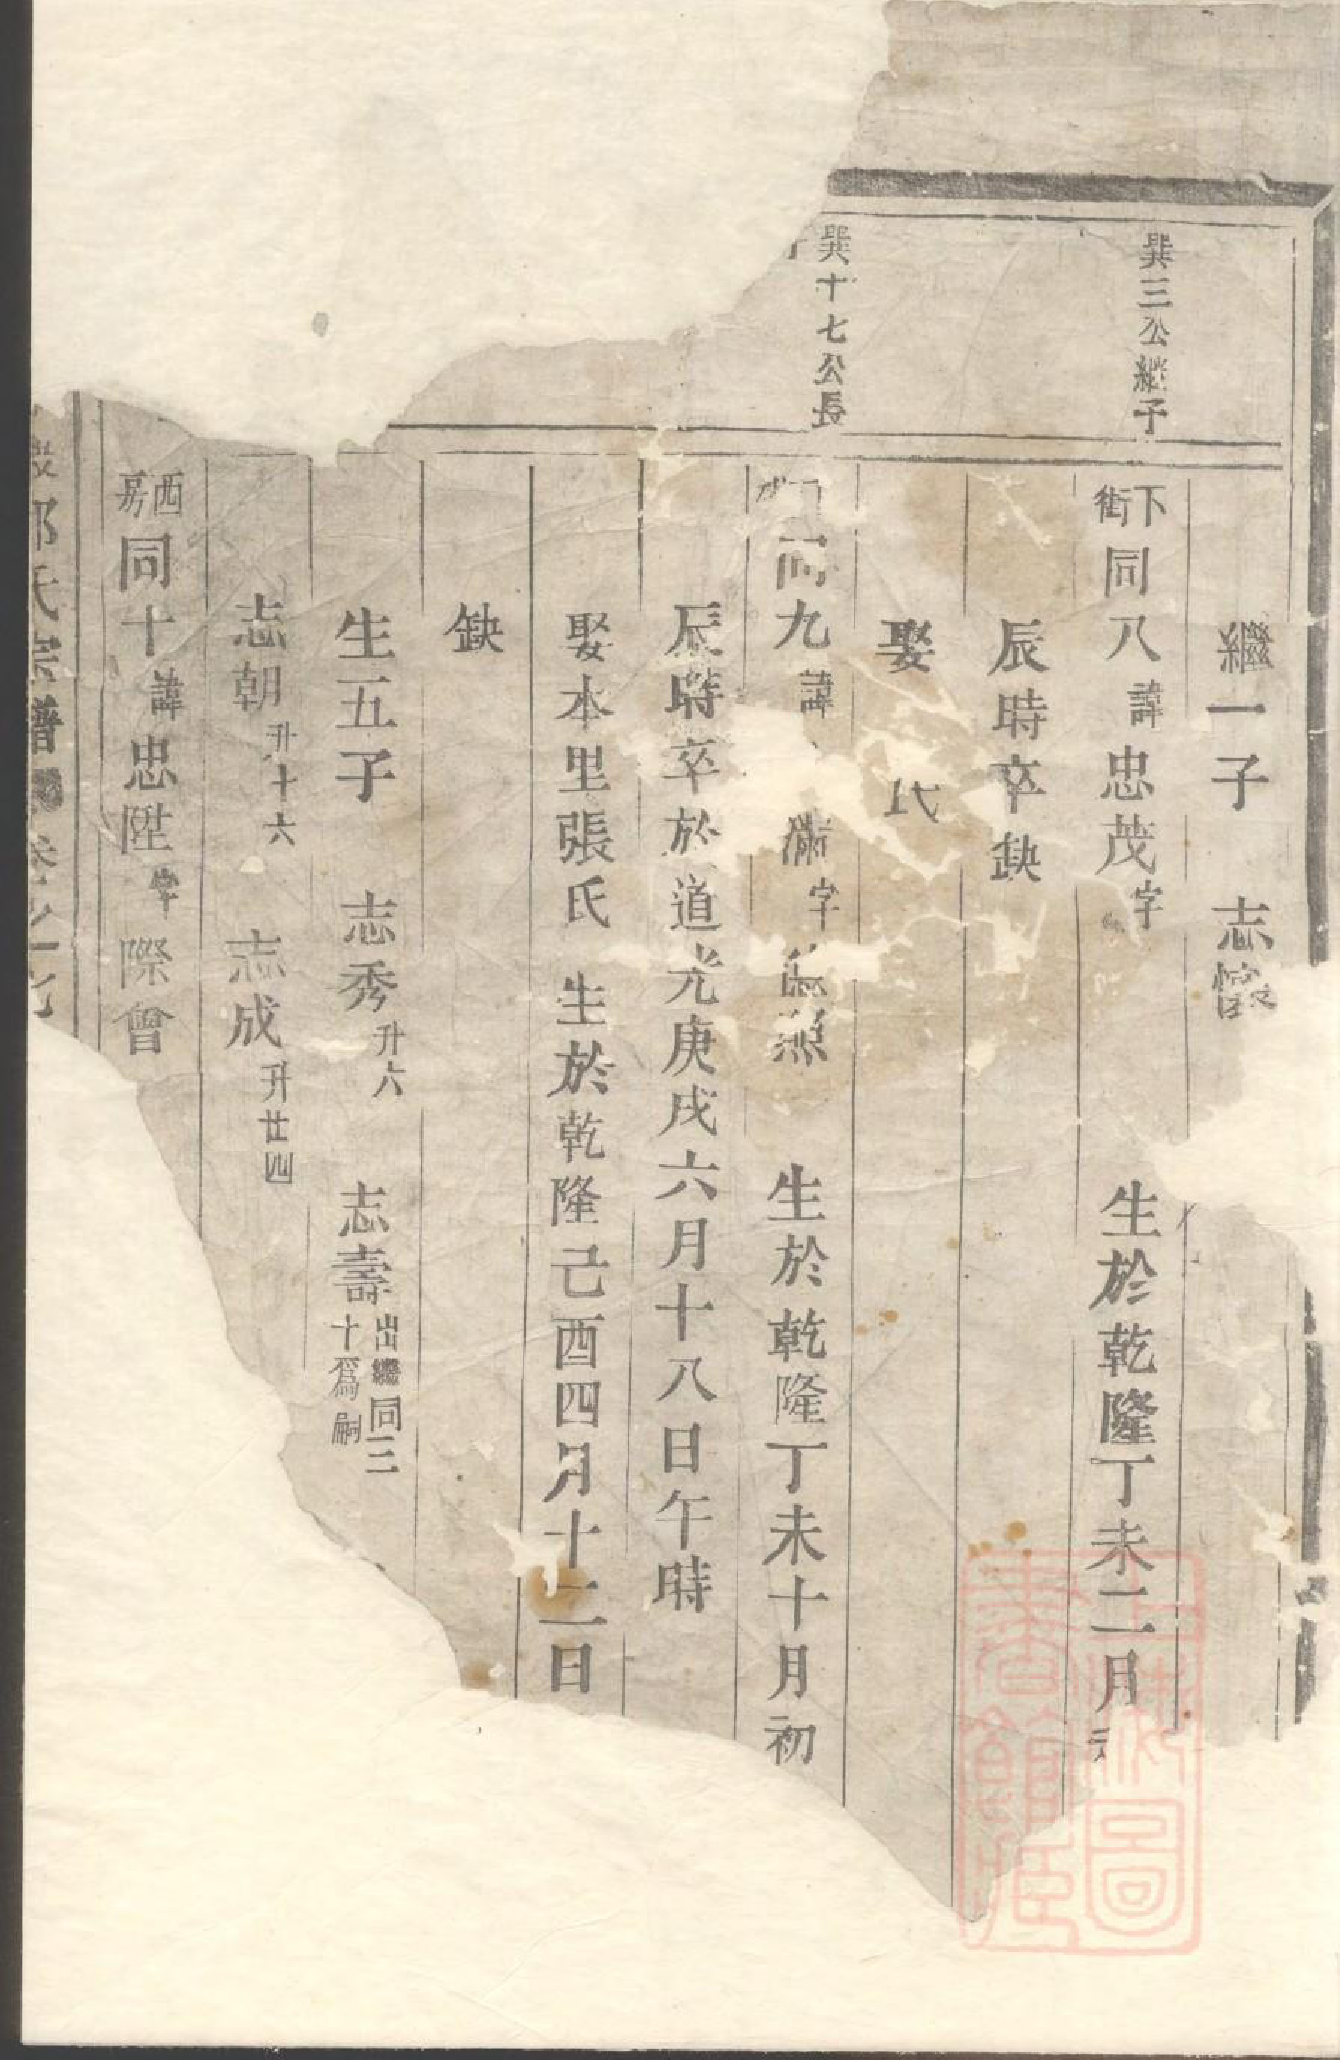 繼一子 志懷
巽三公繼子
下街同八諱忠茂字 生於乾隆丁未二月
辰時卒缺
娶 氏
巽十七公長子
同九諱 滿字 照 生於乾隆丁未十月初
辰時卒於道光庚戌六月十八日午時
娶本里張氏 生於乾隆己酉四月十二日
缺
生五子 志秀升六 志壽出繼同三十爲嗣
志朝升十六 志成升廿四
西房同十諱忠陞字際會
氏宗譜 卷之
上海圖書館藏